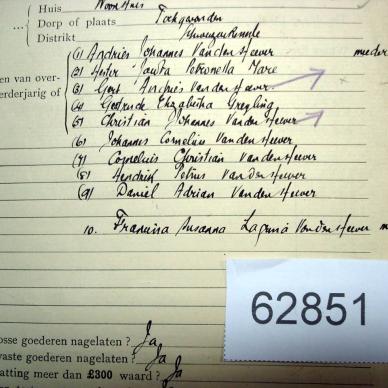 Huis Woonhuis
... Dorp of plaats
Distrikt
(1) Andries Johannes Van den Heever meder
en van over- (2) Hester Jacoba Petronella Mare
erderjarig of (3) Gert Andries Van den Heever
(4) Gertruda Elizabetha Greyling
(5) Christian Johannes Van den Heever
(6) Johannes Cornelius Van den Heever
(7) Cornelius Christian Van den Heever
(8) Hendrik Petrus Van den Heever
(9) Daniel Adrian Van den Heever
10. Francina Susanna Van den Heever
62851
osse goederen nagelaten? Ja
vaste goederen nagelaten? Ja
atting meer dan £300 waard? Ja